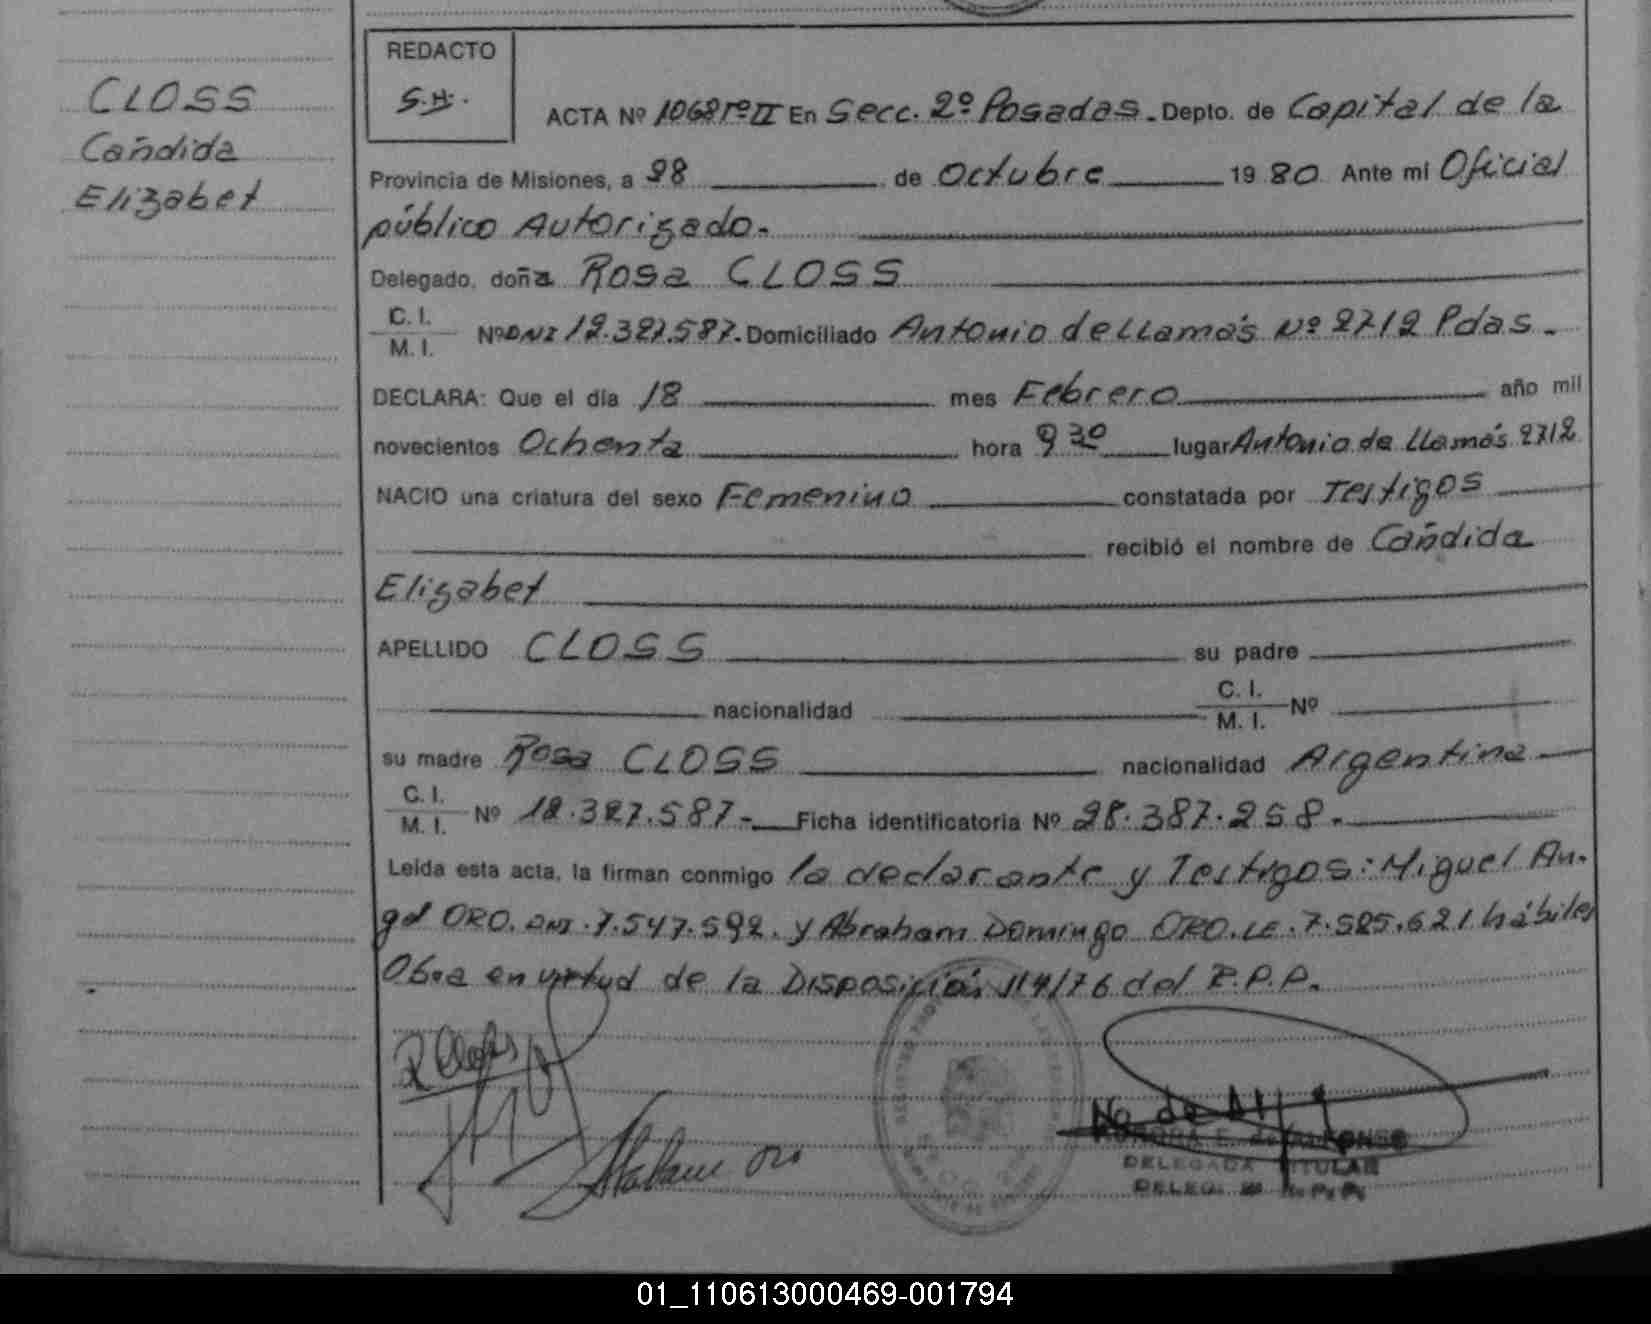 REDACTO
S.H.
CLOSS
Cándida
Elizabet
ACTA Nº 1068 Tº II En Secc. 2º Posadas. Depto. de Capital de la
Provincia de Misiones, a 28 de Octubre 1980 Ante mi Oficial
público Autorizado.
Delegado, doña Rosa CLOSS
C. I.
M. I.
Nº DNI 12.327.587. Domiciliado Antonio de LLamás Nº 2712 Pdas.
DECLARA: Que el día 18 mes Febrero año mil
novecientos Ochenta hora 9 30 lugar Antonio de LLamás 2712
NACIO una criatura del sexo Femenino constatada por Testigos
recibió el nombre de Cándida
Elizabet
APELLIDO CLOSS su padre
nacionalidad C. I. M. I. Nº
su madre Rosa CLOSS nacionalidad Argentina
C. I.
M. I.
Nº 12.327.587.- Ficha identificatoria Nº 28.387.258.
Leída esta acta, la firman conmigo la declarante y Testigos: Miguel An-
gel ORO. DNI. 7.547.592. y Abraham Domingo ORO. LE. 7.585.621 hábiles
Obra en virtud de la Disposición 114/76 del R.P.P.
R Closs
Abraham Oro
DELEGADA TITULAR
01_110613000469-001794